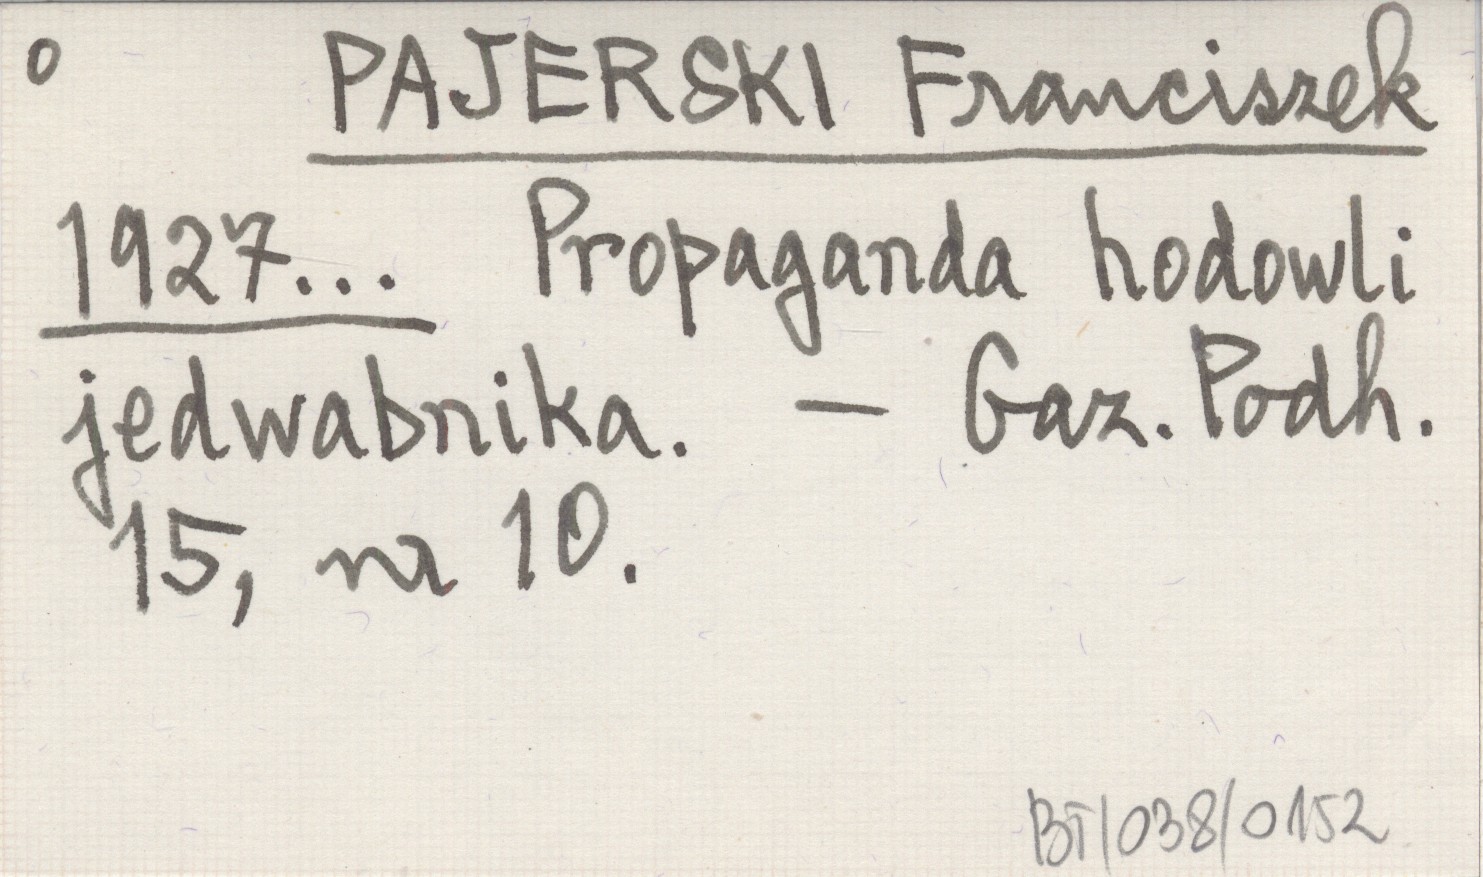 o PAJERSKI Franciszek
1927... Propaganda hodowli
jedwabnika. — Gaz. Podh.
15, nr 10.
BT/038/0152